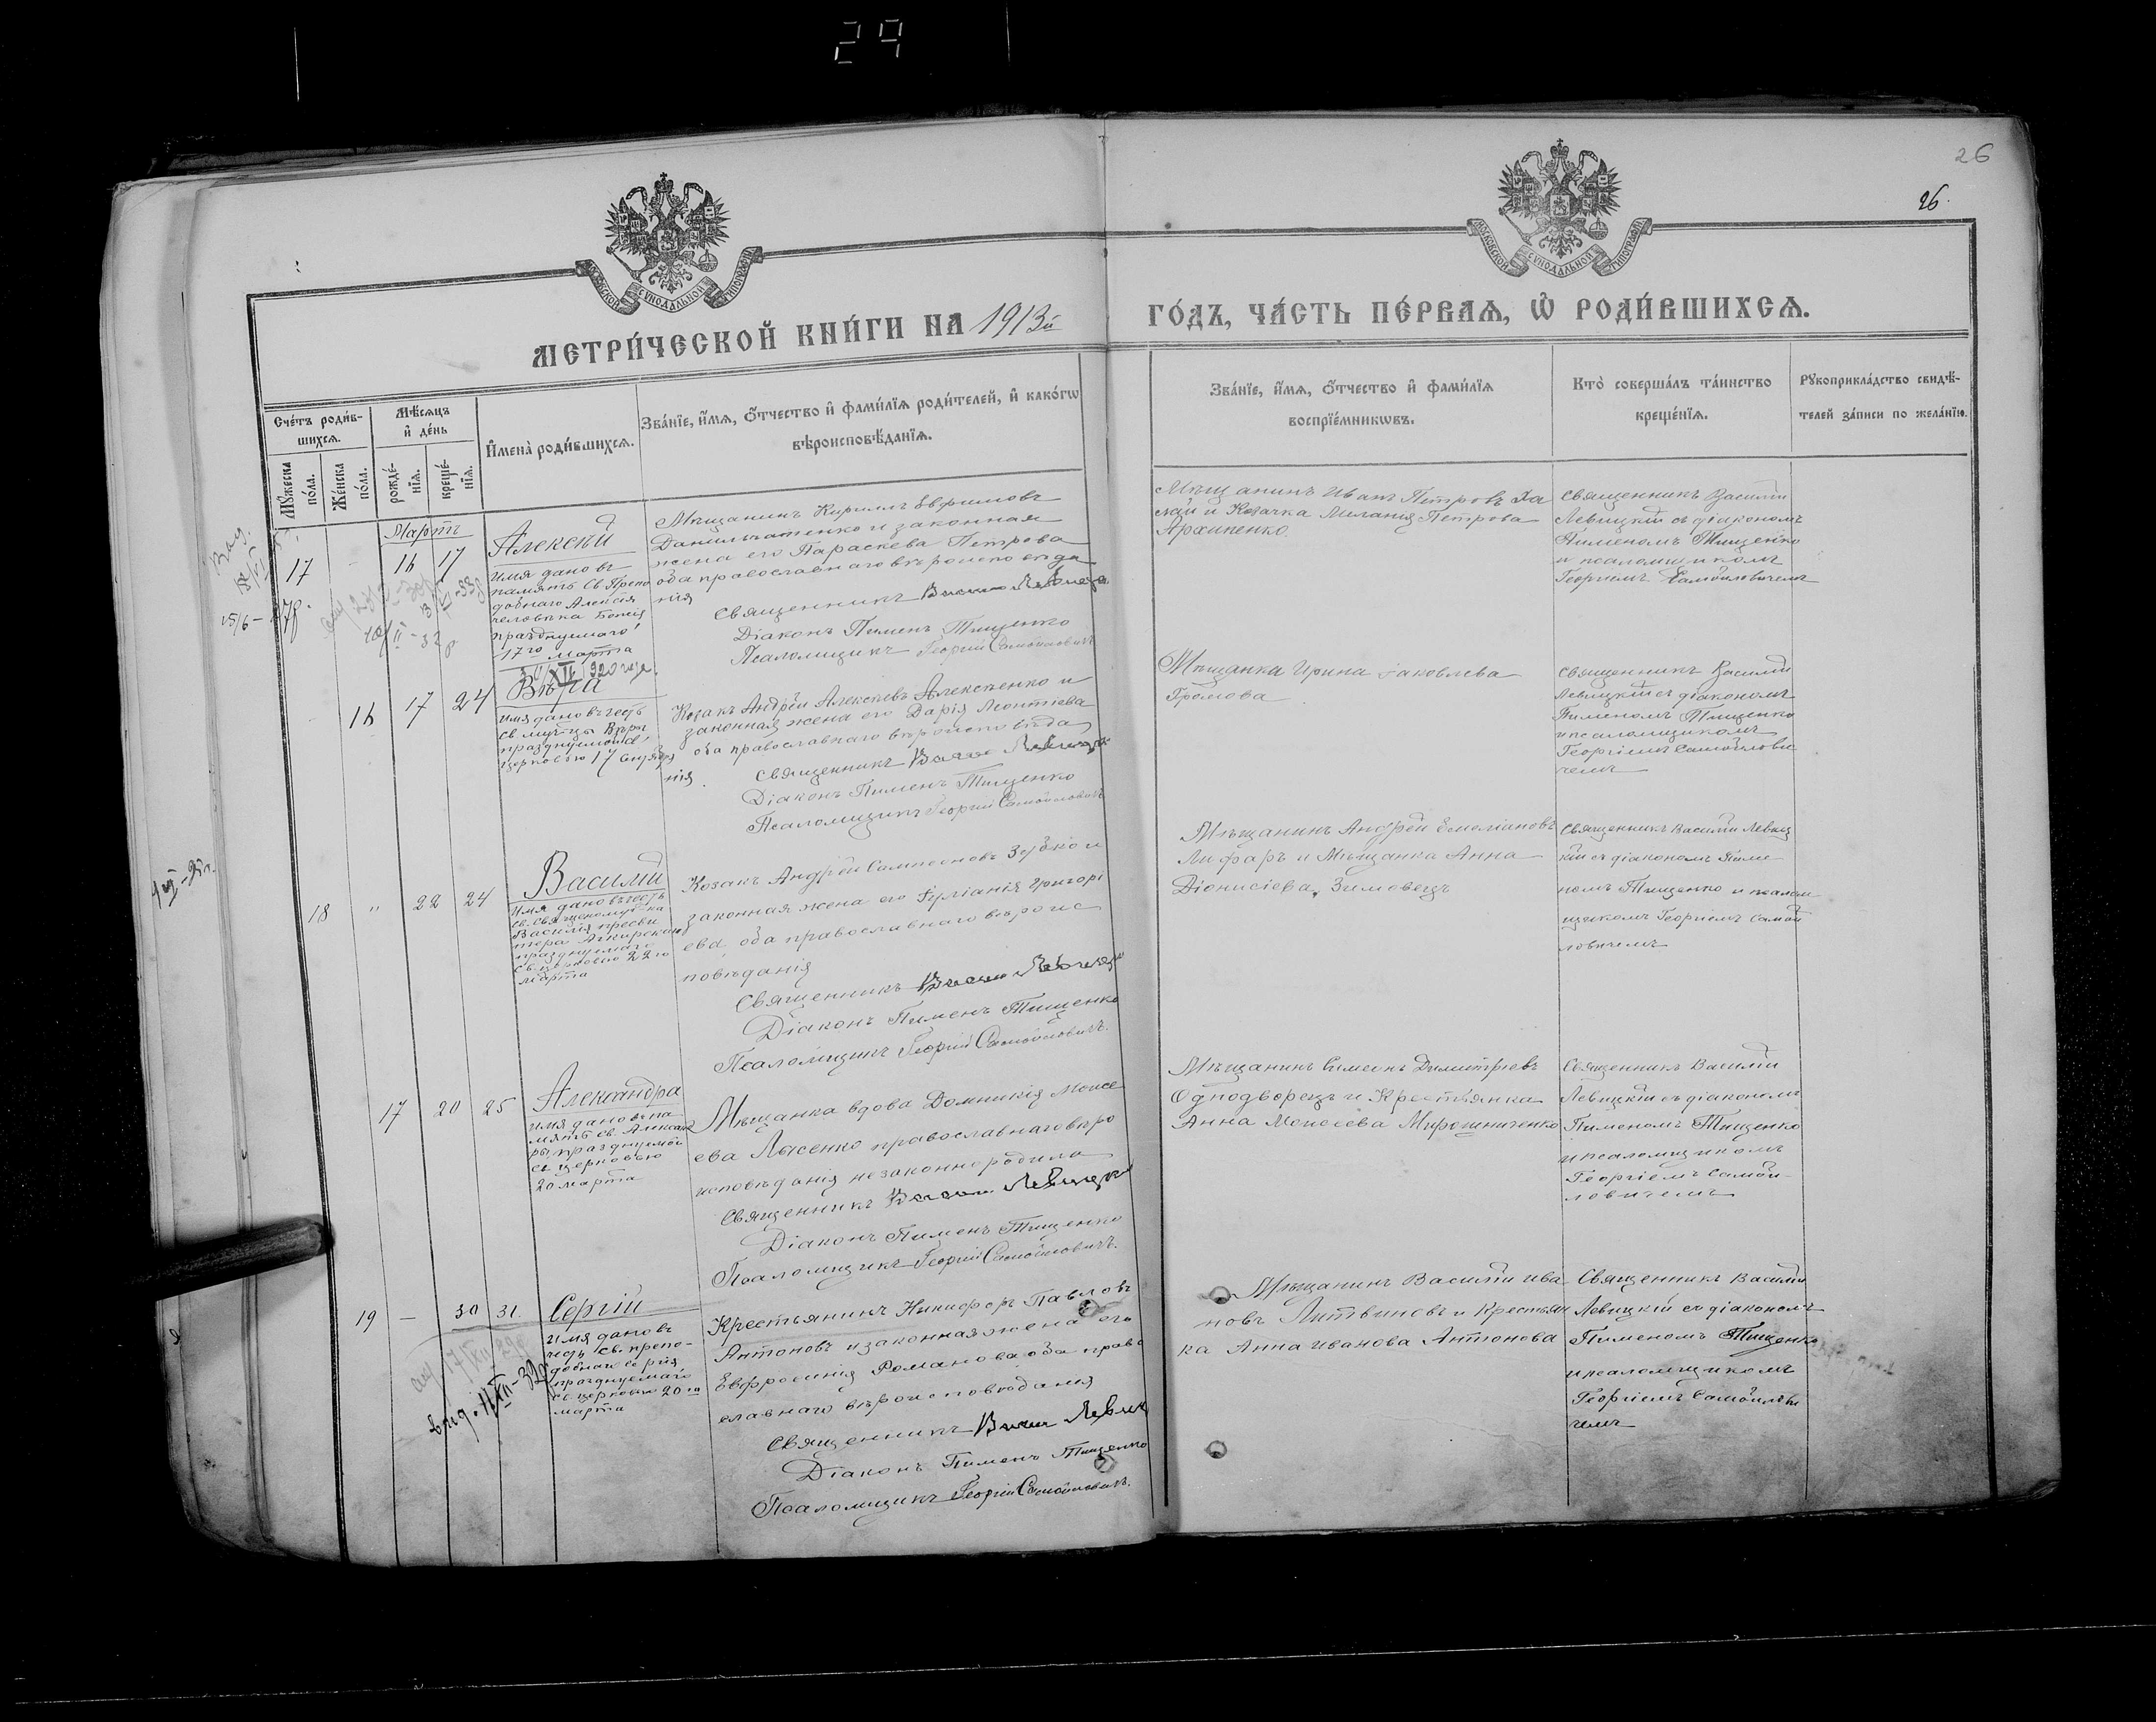 29
26
26.
МОСКОВСКОЙ СѴНОДАЛЬНОЙ ТИПОГРАФІИ
МОСКОВСКОЙ СѴНОДАЛЬНОЙ ТИПОГРАФІИ
МЕТРИ́ЧЕСКОЙ КНИ́ГИ НА 1913й ГО́ДЪ, ЧА́СТЬ ПЕ́РВАѦ, Ѡ҆ РОДИ́ВШИХСѦ.
Сче́тъ роди́в-
шихсѧ.
Мꙋ́жеска
по́ла.
Же́нска
по́ла.
Мѣ́сѧцъ
и҆ де́нь
рожде́-
нїѧ.
креще́-
нїѧ.
И҆мена̀ роди́вшихсѧ.
Зва́нїе, и҆́мѧ, ѻ҆́тчество и҆ фами́лїѧ роди́телей, и҆ како́гѡ
вѣроисповѣ́данїѧ.
Зва́нїе, и҆́мѧ, ѻ҆́тчество и҆ фами́лїѧ
воспрїе́мникѡвъ.
Кто̀ соверша́лъ та́инство
креще́нїѧ.
Рꙋкоприкла́дство свидѣ́-
телей за́писи по жела́нїю.
Мартъ
17 - 16 17
Алексѣй
имя дано въ
память Св. Препо
добнаго Алексѣя
человѣка Божія
празднуемаго
17го марта
Мѣщанинъ Кириллъ Евфимовъ
Данильченко и законная
жена его Параскева Петрова
оба православнаго вѣроисповѣда
нія
Священникъ Василій Левицкій
Діаконъ Пименъ Тищенко
Псаломщикъ Георгій Самойловичъ
Мѣщанинъ Иванъ Петровъ Ха
лай и Козачка Меланія Петрова
Архипенко
Священникъ Василій
Левицкій съ діакономъ
Пименомъ Тищенко
и псаломщикомъ
Георгіемъ Самойловичемъ
16 17 24
Вѣра
имя дано въ честь
св. муч-цы Вѣры
празднуемой
церковью 17 Сентября
Козакъ Андрей Алексѣевъ Алексѣенко и
законная жена его Дарія Леонтіева
оба православнаго вѣроисповѣда
нія.
Священникъ Василій Левицкій
Діаконъ Пименъ Тищенко
Псаломщикъ Георгій Самойловичъ
Мѣщанка Ирина Іаковлева
Громова
Священникъ Василій
Левицкій съ діакономъ
Пименомъ Тищенко
и псаломщикомъ
Георгіемъ Самойлови
чемъ
18 " 22 24
Василій
имя дано въ честь
св. священомуч-ка
Василія пресви
тера Анкирскаго
празднуемаго
св. церковью 22го
марта
Козакъ Андрей Сампсоновъ Зубко и
законная жена его Іуліанія Григорі
ева, оба православнаго вѣроис
повѣданія
Священникъ Василій Левицкій
Діаконъ Пименъ Тищенко
Псаломщикъ Георгій Самойловичъ.
Мѣщанинъ Андрей Емеліановъ
Лифаръ и Мѣщанка Анна
Діонисіева Зимовецъ
Священникъ Василій Левиц
кій съ діакономъ Пиме
номъ Тищенко и псалом
щикомъ Георгіемъ Самой
ловичемъ
17 20 25
Александра
имя дано въ па
мять св. Александ
ры, празднуемой
св. церковью
20 марта
Мѣщанка вдова Домникія Моисе
ева Лысенко православнаго вѣро
исповѣданія незаконно родила
Священникъ Василій Левицкій
Діаконъ Пименъ Тищенко
Псаломщикъ Георгій Самойловичъ.
Мѣщанинъ Симеонъ Димитріевъ
Однодворецъ и Крестьянка
Анна Моисеева Мирошниченко
Священникъ Василій
Левицкій съ діакономъ
Пименомъ Тищенко
и псаломщикомъ
Георгіемъ Самой-
ловичемъ
19 - 30 31.
Сергій
имя дано въ
честь св. препо-
добнаго Сергія,
празднуемаго
св. церковью 20го
марта
Крестьянинъ Никифоръ Павловъ
Антоновъ и законная жена его
Евфросинія Романова оба право
славнаго вѣроисповѣданія
Священникъ Василій Левиц
Діаконъ Пименъ Тищенко
Псаломщикъ Георгій Самойловичъ.
Мѣщанинъ Василій Ива
новъ Литвиновъ и Крестьян
ка Анна Иванова Антонова
Священникъ Василій
Левицкій съ діакономъ
Пименомъ Тищенко
и псаломщикомъ
Георгіемъ Самойлови
чемъ